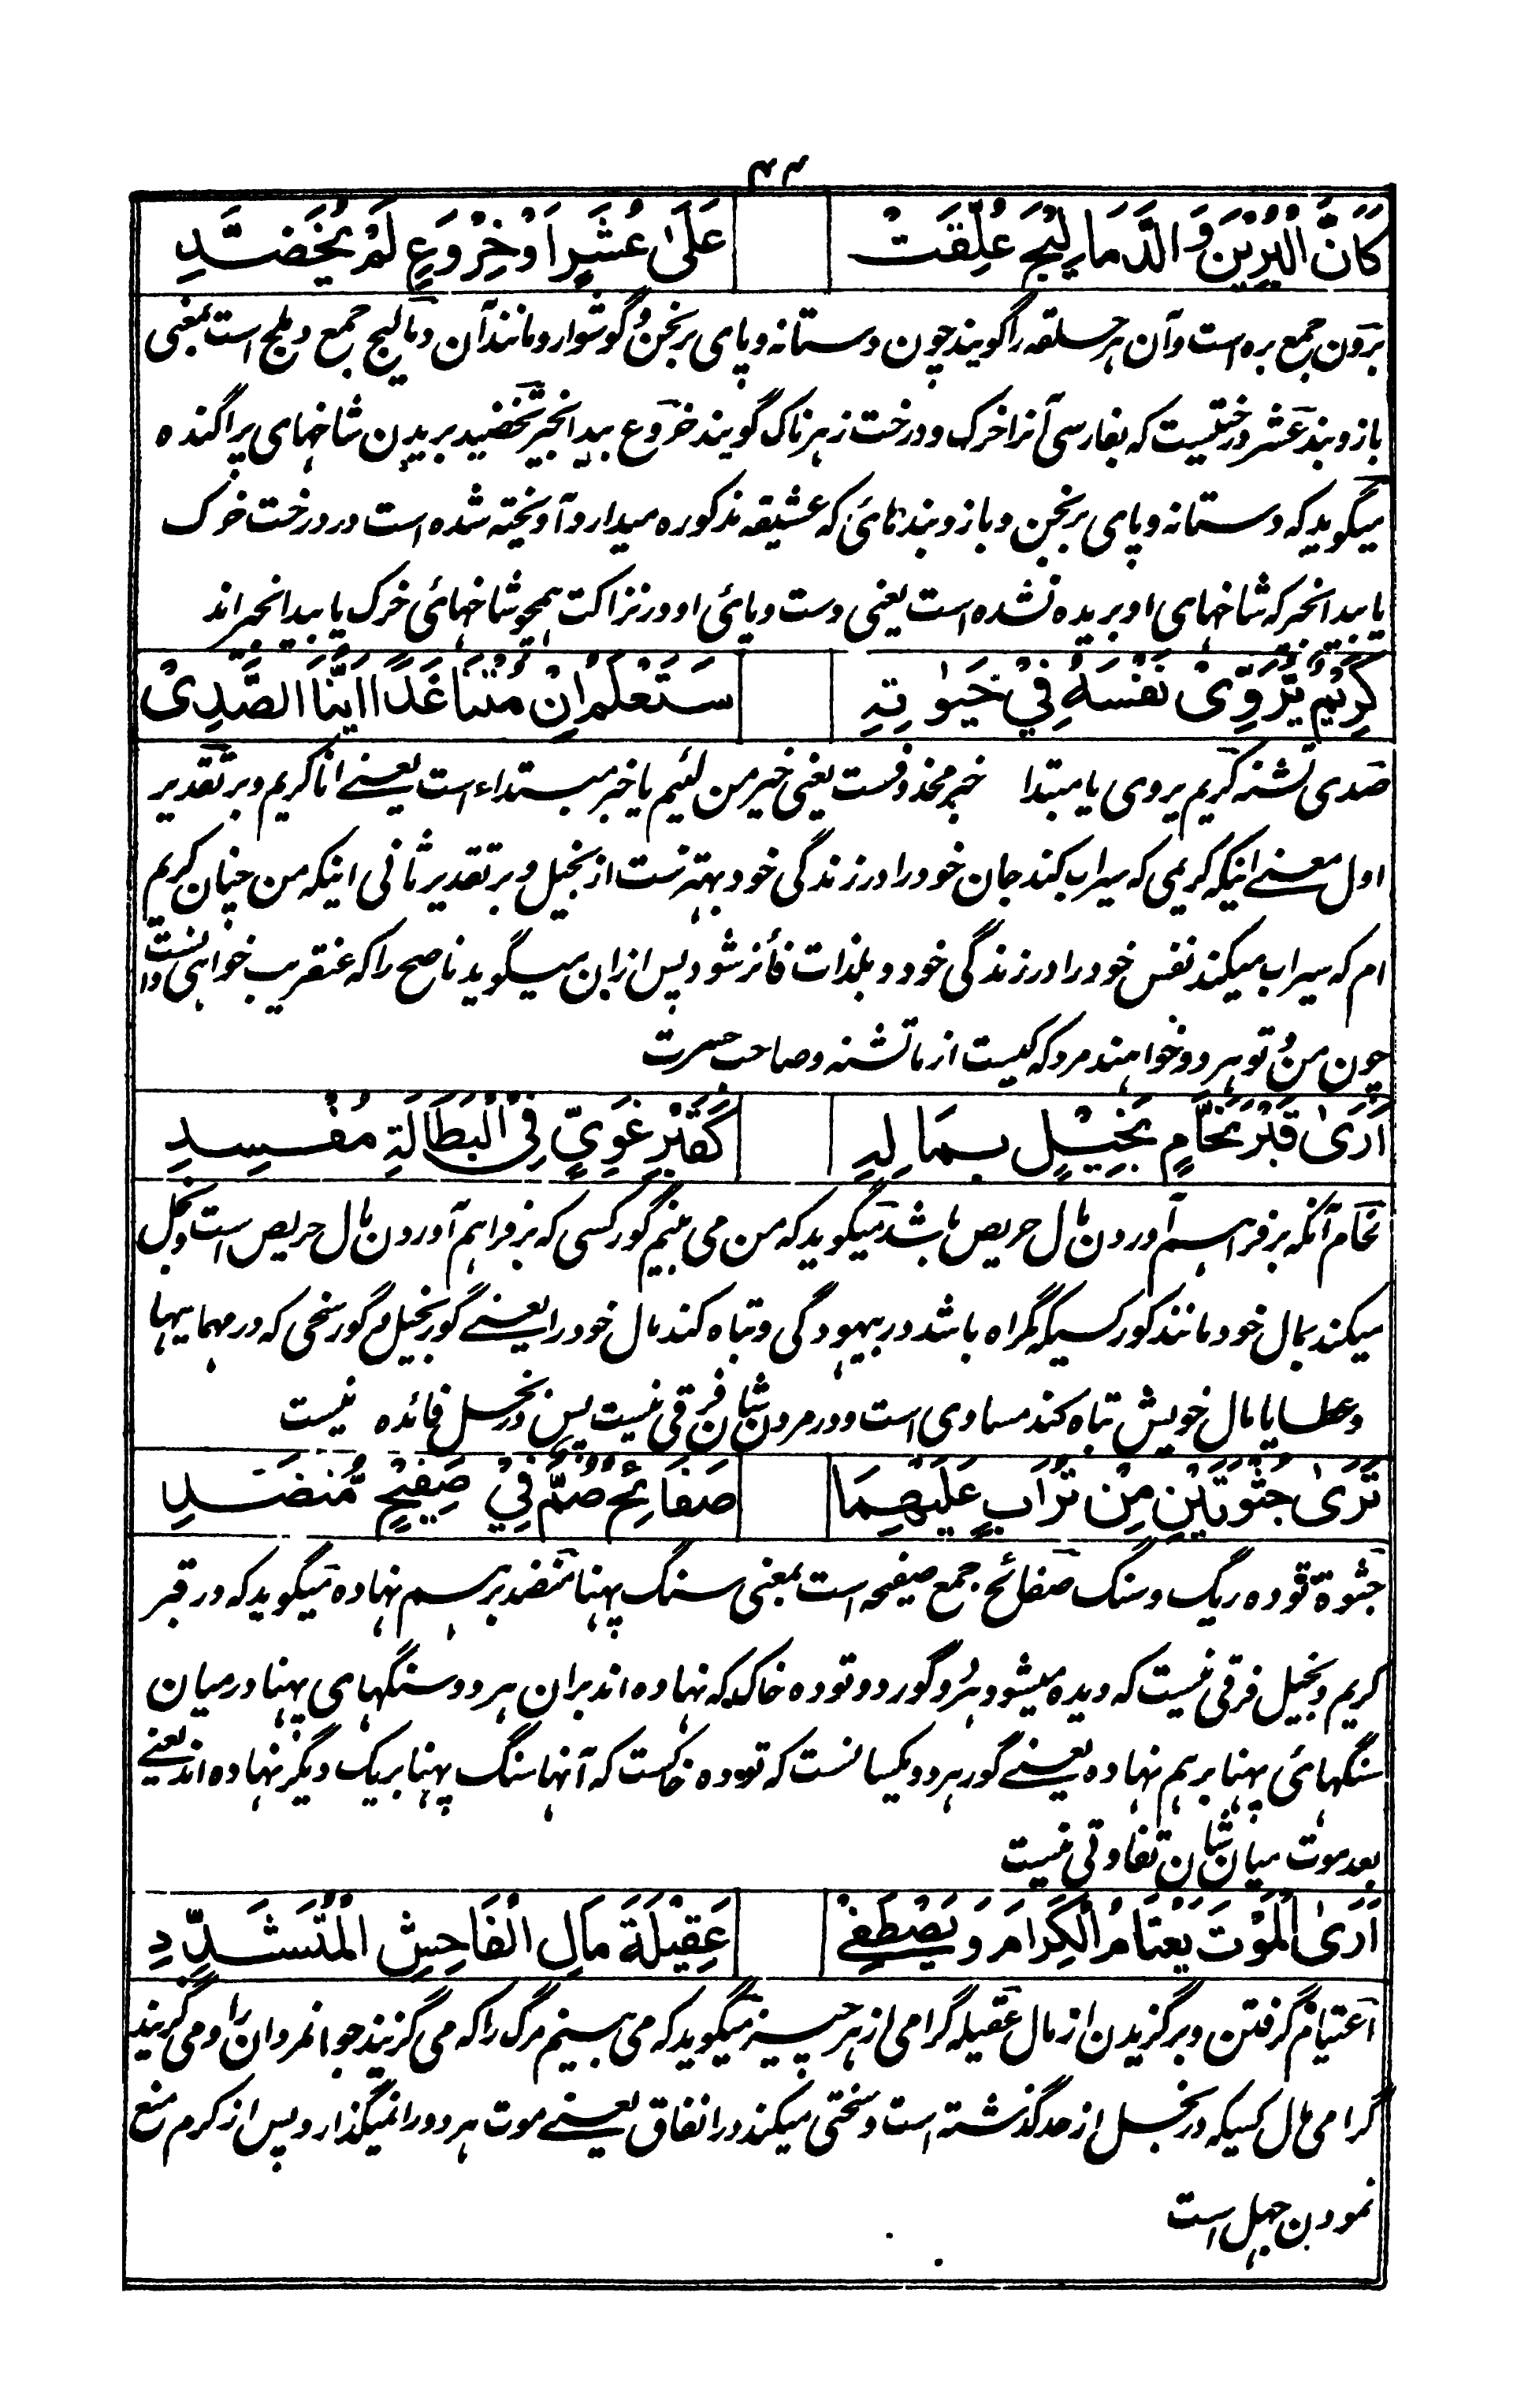 ۴۴
كَاَنَّ الْبُرِيْنَ وَ الدَّمَالِيْجَ عُلِّقَتْ عَلٰى عُشَرٍ اَوْ خِرْوَعٍ لَمْ يُخَضَّدِ
برون جمع بره است وآن هر حلقه را گویند چون دستانه و پای برنجن و گوشوار و مانند آن دمالیج جمع دملج است بمعنی
بازو بند عشر درختیست که بفارسی آنرا خرک و درخت زهرناک گویند خروع بیدانجیر تخضید بریدن شاخهای پراگنده
میگوید که دستانه و پای برنجن و بازوبندهائی که عشیقه مذکوره میدارد آویخته شده است در درخت خرک
یا بیدانجیر که شاخهای او بریده نشده است یعنی دست و پائی او در نزاکت همچو شاخهائی خرک یا بیدانجیر اند
كَرِيْمٌ يُّرَوِّىْ نَفْسَهٗ فِيْ حَيٰوتِهٖ سَتَعْلَمُ اِنْ مُتْنَا غَدًا اَيُّنَا الصَّدِىْ
صدی تشنه کریم یروی یا مبتدا خبر محذوفست یعنی خیر من لئیم یا خبر مبتداء است یعنے انا کریم و بر تقدیر
اول معنے اینکه کریمی که سیراب کند جان خود را در زندگی خود بهترست از بخیل و بر تقدیر ثانی اینکه من چنان کریم
ام که سیراب میکند نفس خود را در زندگی خود و بلذات فائز شود پس ازان میگوید ناصح را که عنقریب خواهی دانست
چون من و تو هر دو خواهند مرد که کیست از ما تشنه و صاحب حسرت
اَرٰى قَبْرَ نَحَّامٍ بَخِيْلٍ بِمَالِهٖ كَقَبْرِ غَوِيٍّ فِى الْبَطَالَةِ مُفْسِدِ
نحام آنکه بر فراهم آوردن مال حریص باشد میگوید که من می بینم گور کسی که بر فراهم آوردن مال حریص است و بخل
میکند بمال خود مانند گور کسیکه گمراه باشد در بیهودگی و تباه کند مال خود را یعنے گور بخیل و گور سخی که در مهمانیها
و عطایا مال خویش تباه کند مساوی است و در مردن شان فرقی نیست پس در بخل فائده نیست
تَرٰى جُثْوَتَيْنِ مِنْ تُرَابٍ عَلَيْهِمَا صَفَائِحُ صُمٌّ فِيْ صَفِيْحٍ مُّنَضَّدِ
جثوة توده ریگ و سنگ صفائح جمع صفیحه است بمعنی سنگ پهنا منضد برهم نهاده میگوید که در قبر
کریم و بخیل فرقی نیست که دیده میشود هر دو گور دو توده خاک که نهاده اند بران هر دو سنگهای پهنا درمیان
سنگهائی پهنا برهم نهاده یعنے گور هر دو یکسانست که توده خاکست که آنها سنگ پهنا بریک دیگر نهاده اند یعنے
بعد موت میان شان تفاوتی نیست
اَرٰى الْمَوْتَ يَعْتَامُ الْكِرَامَ وَ يَصْطَفِيْ عَقِيْلَةَ مَالِ الْفَاحِشِ الْمُتَشَدِّدِ
اعتیام گرفتن و برگزیدن از مال عقیله گرامی از هر چیز میگوید که می بینم مرگ را که می گزیند جوانمردان را و می گزیند
گرامی مال کسیکه در بخل از حد گذشته است و سختی میکند در انفاق یعنے موت هر دو را نمیگذارد پس از کرم منع
نمودن جهل است